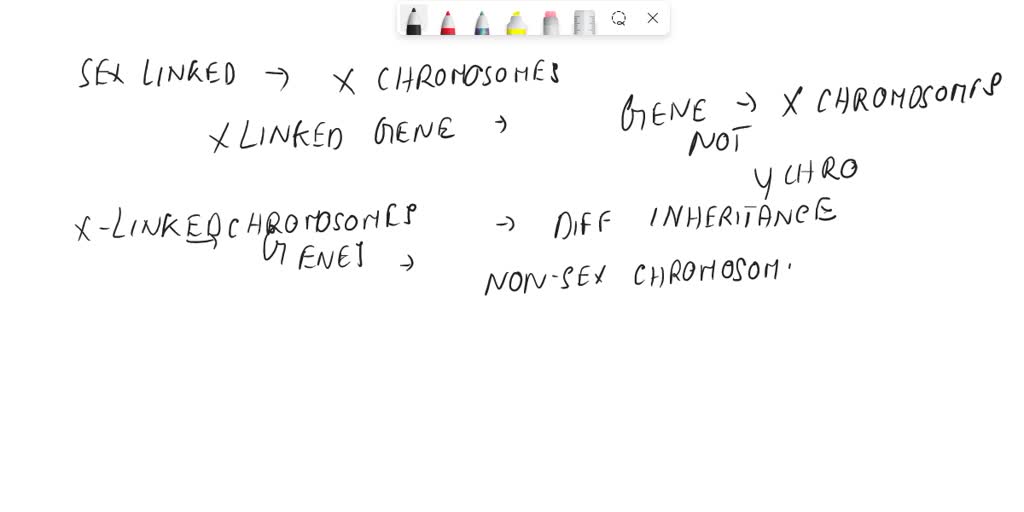 SEX LINKED → X CHROMOSOMES
X LINKED GENE → GENE → X CHROMOSOMES
NOT
Y CHRO
X-LINKED CHROMOSOMES → DIFF INHERITANCE
GENES → NON-SEX CHROMOSOM.